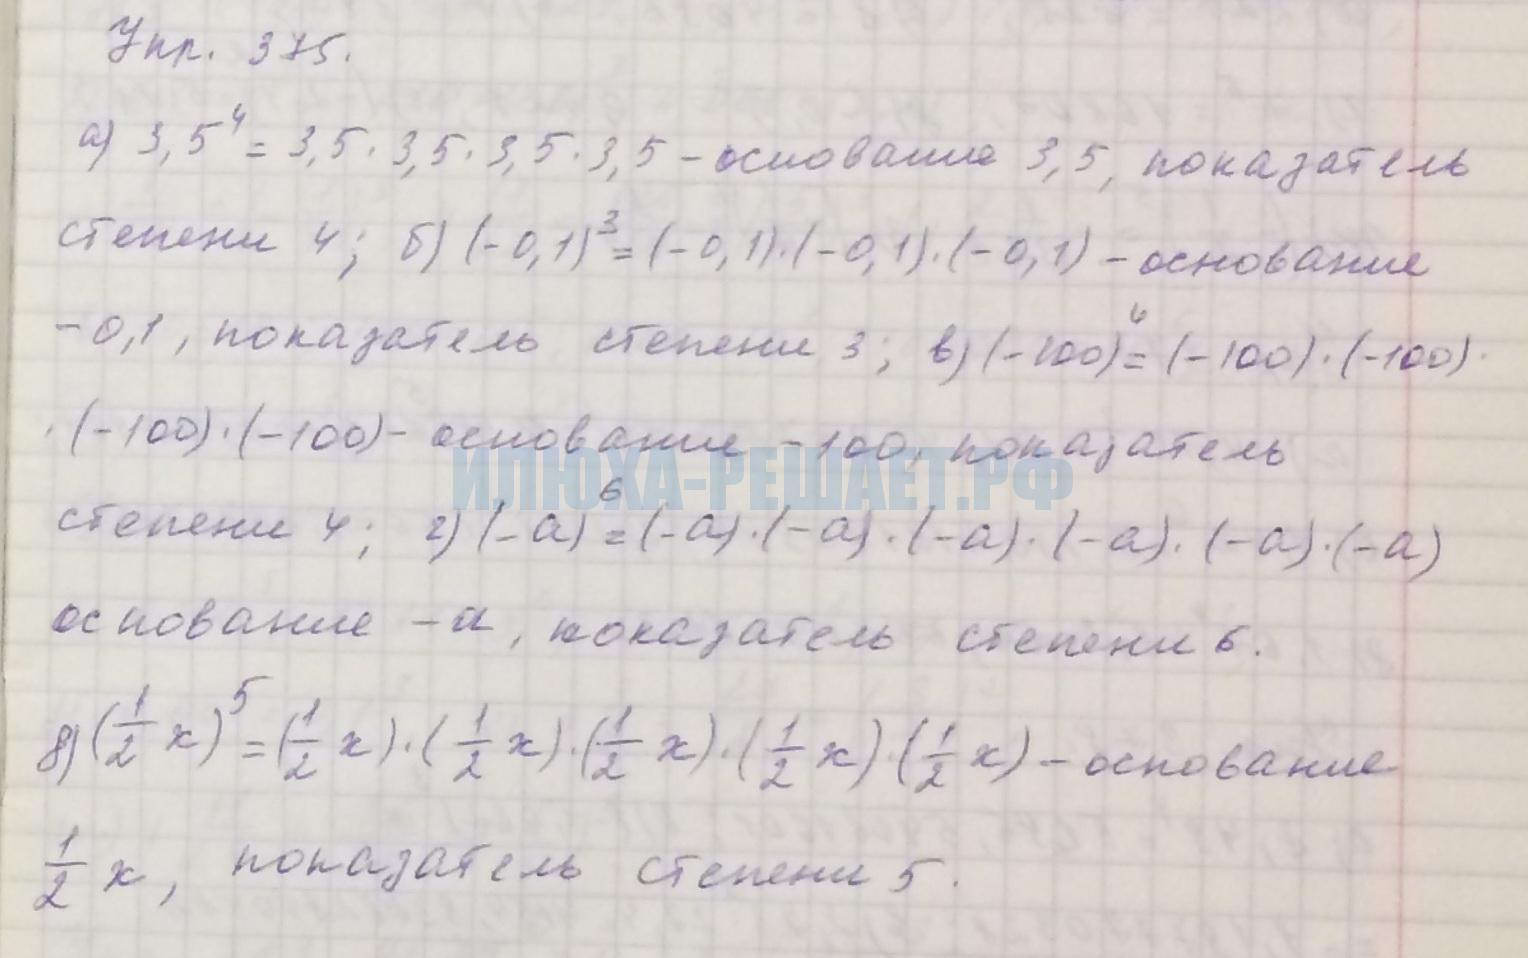 Упр. 375.
а) 3,5⁴ = 3,5 · 3,5 · 3,5 · 3,5 – основание 3,5, показатель
степени 4; б) (-0,1)³ = (-0,1) · (-0,1) · (-0,1) – основание
-0,1, показатель степени 3; в) (-100)⁴ = (-100) · (-100) ·
· (-100) · (-100) – основание -100, показатель
ИЛЮХА-РЕШАЕТ.РФ
степени 4; г) (-a)⁶ = (-a) · (-a) · (-a) · (-a) · (-a) · (-a)
основание -a, показатель степени 6.
д) (1/2 x)⁵ = (1/2 x) · (1/2 x) · (1/2 x) · (1/2 x) · (1/2 x) – основание
1/2 x, показатель степени 5.